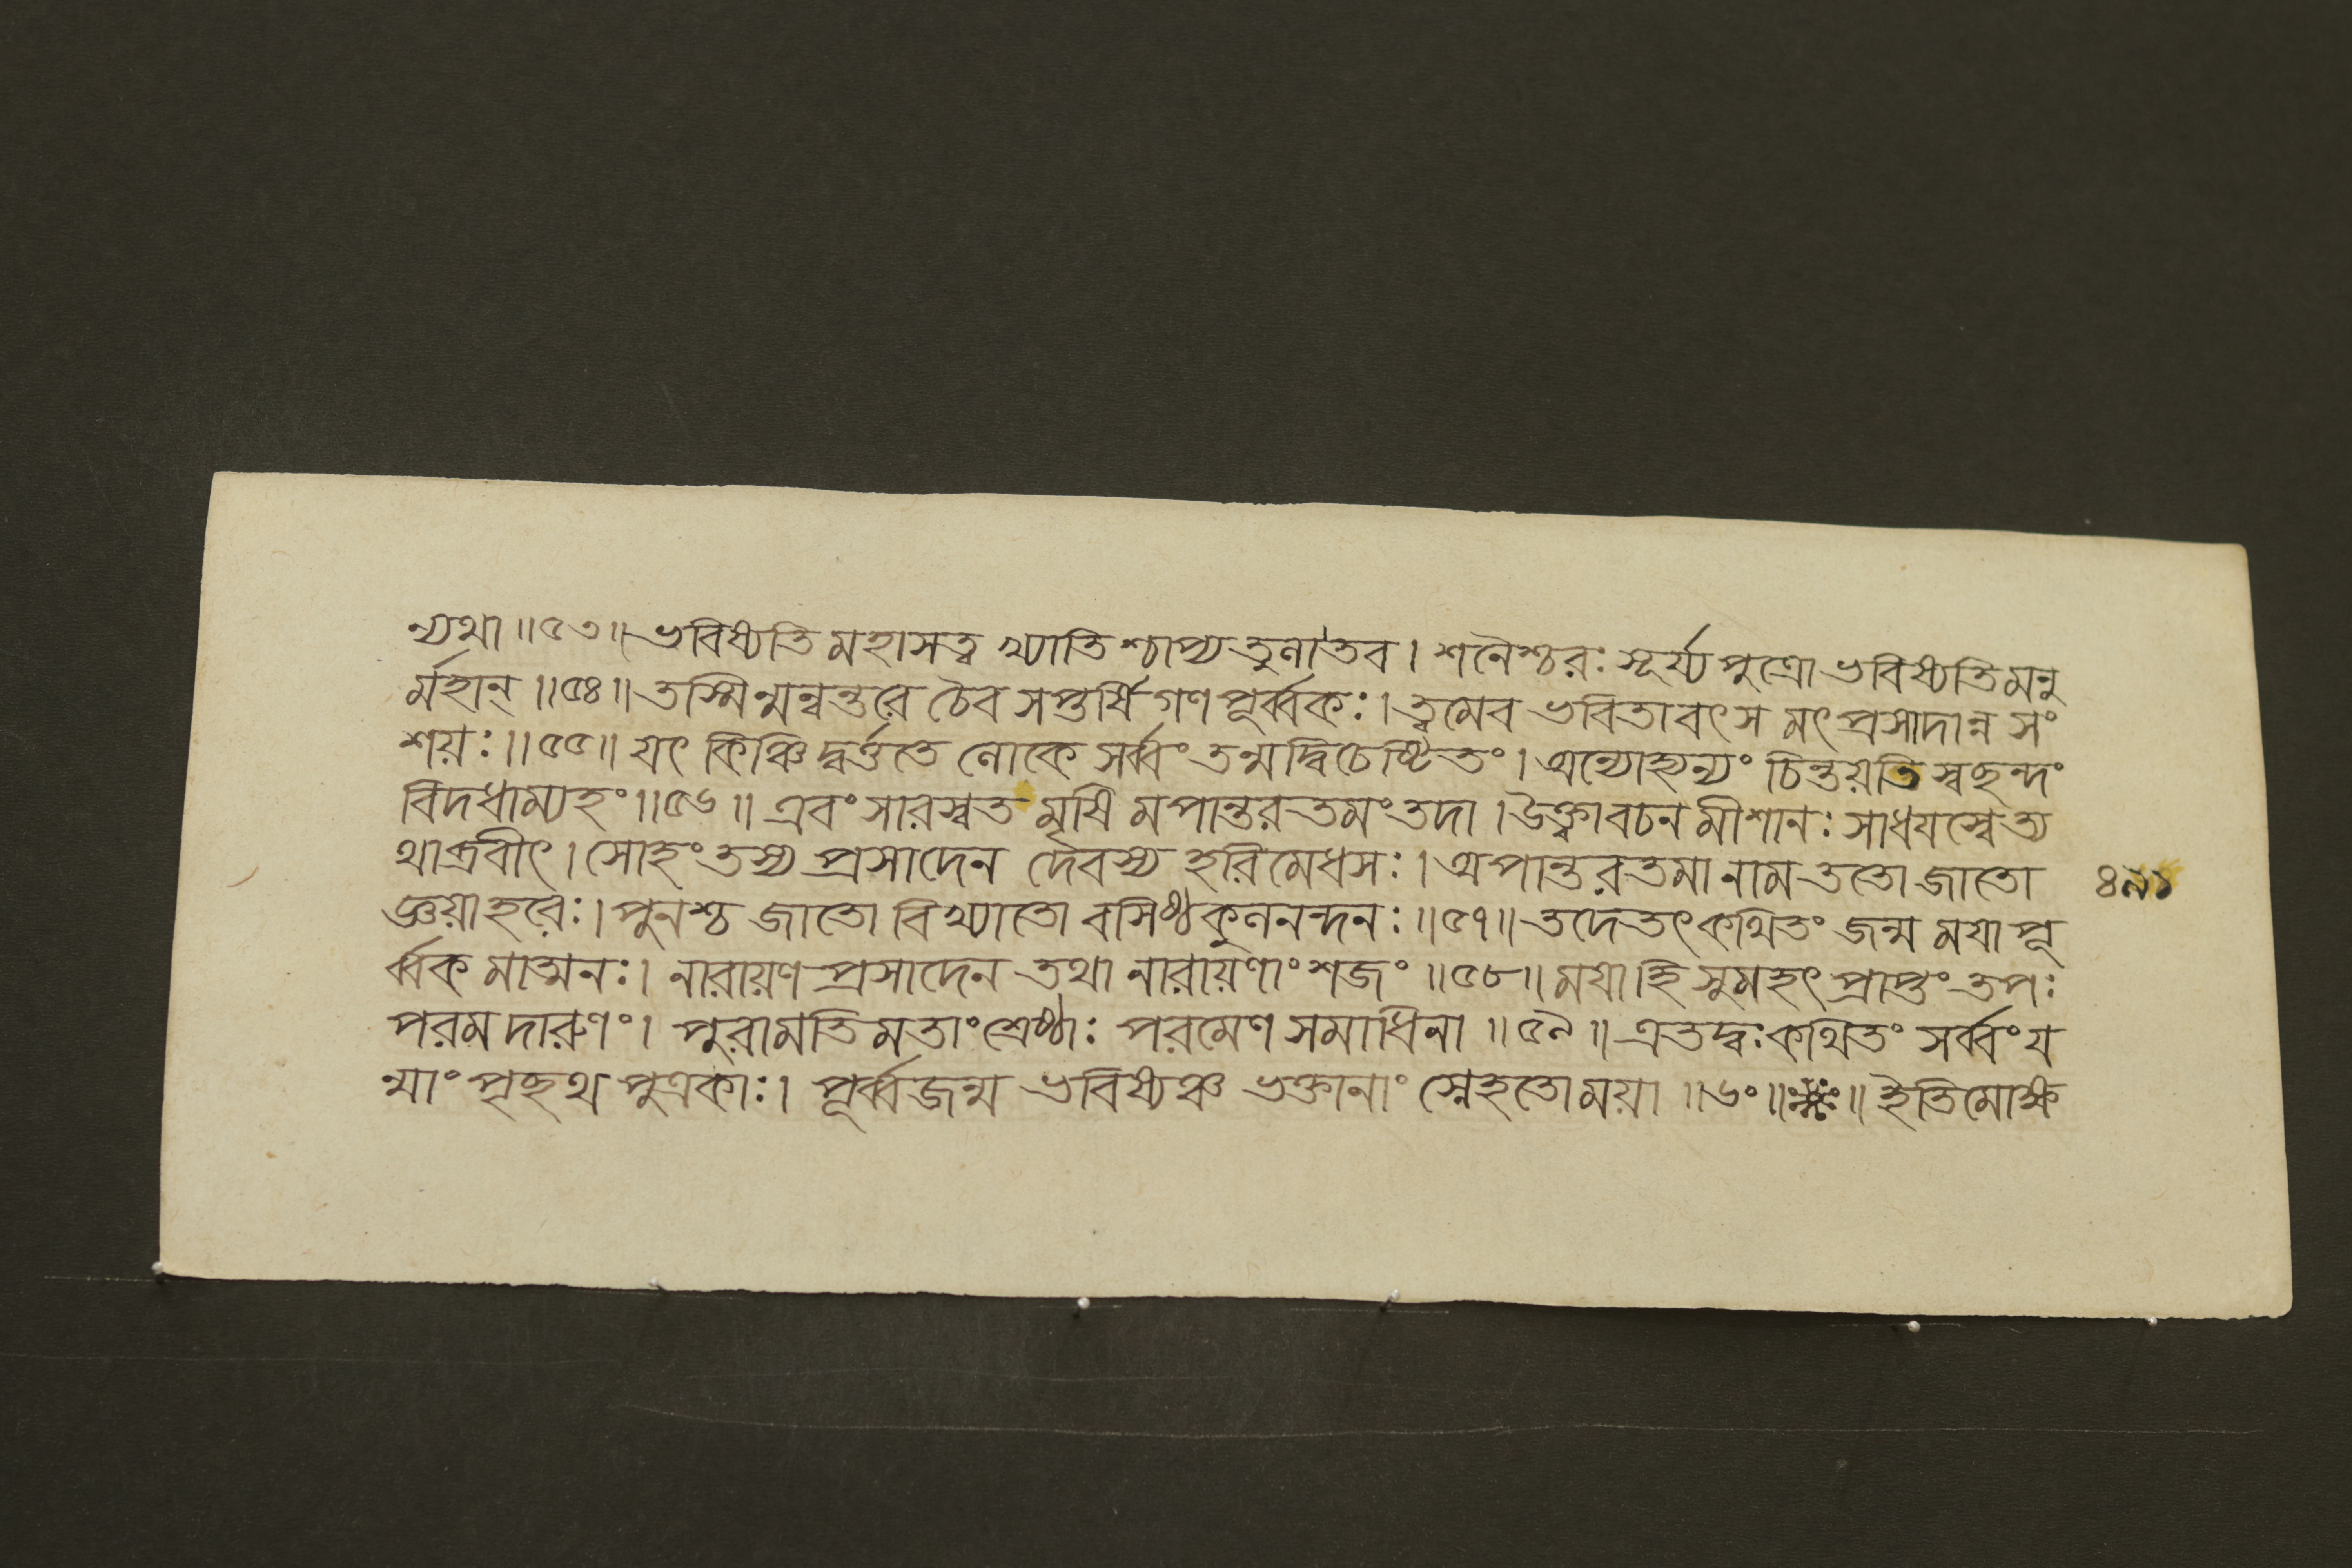 ন্যথা ॥৫৩॥ ভবিষ্যতি মহাসত্ব খ্যাতিশ্চাপ্যতুলা তব । শনৈশ্চরঃ সূর্য্যপুত্রো ভবিষ্যতি মনু
র্মহান্ ॥৫৪॥ তস্মিন্মন্বন্তরে চৈব সপ্তর্ষিগণপূর্ব্বকঃ । ত্বমেব ভবিতা বৎস মৎপ্রসাদান্ন সং
শয়ঃ ॥৫৫॥ যৎকিঞ্চিদ্বর্ত্ততে লোকে সর্ব্বং তন্মদ্বিচেষ্টিতং । অন্যোহ্যন্যং চিন্তয়তি স্বছন্দং
বিদধাম্যহং ॥৫৬॥ এবং সারস্বতমৃষিমপান্তরতমং তদা । উক্ত্বা বচনমীশানঃ সাধযস্বেত্য
থাব্রবীৎ । সোহং তস্য প্রসাদেন দেবস্য হরিমেধসঃ । অপান্তরতমা নাম ততো জাতো
জ্ঞয়া হরেঃ । পুনশ্চ জাতো বিখ্যাতো বসিষ্ঠকুলনন্দনঃ ॥৫৭॥ তদেতৎকথিতং জন্ম মযা পূ
র্ব্বকমাত্মনঃ । নারায়ণপ্রসাদেন তথা নারায়ণাংশজং ॥৫৮॥ মযা হি সুমহৎ প্রাপ্তং তপঃ
পরমদারুণং । পুরা মতিমতাং শ্রেষ্ঠাঃ পরমেণ সমাধিনা ॥৫৯॥ এতদ্বঃ কথিতং সর্ব্বং য
ন্মাং পৃছথ পুত্রকাঃ । পূর্ব্বজন্ম ভবিষ্যঞ্চ ভক্তানাং স্নেহতো ময়া ॥৬০॥ ॥ ইতি মোক্ষ